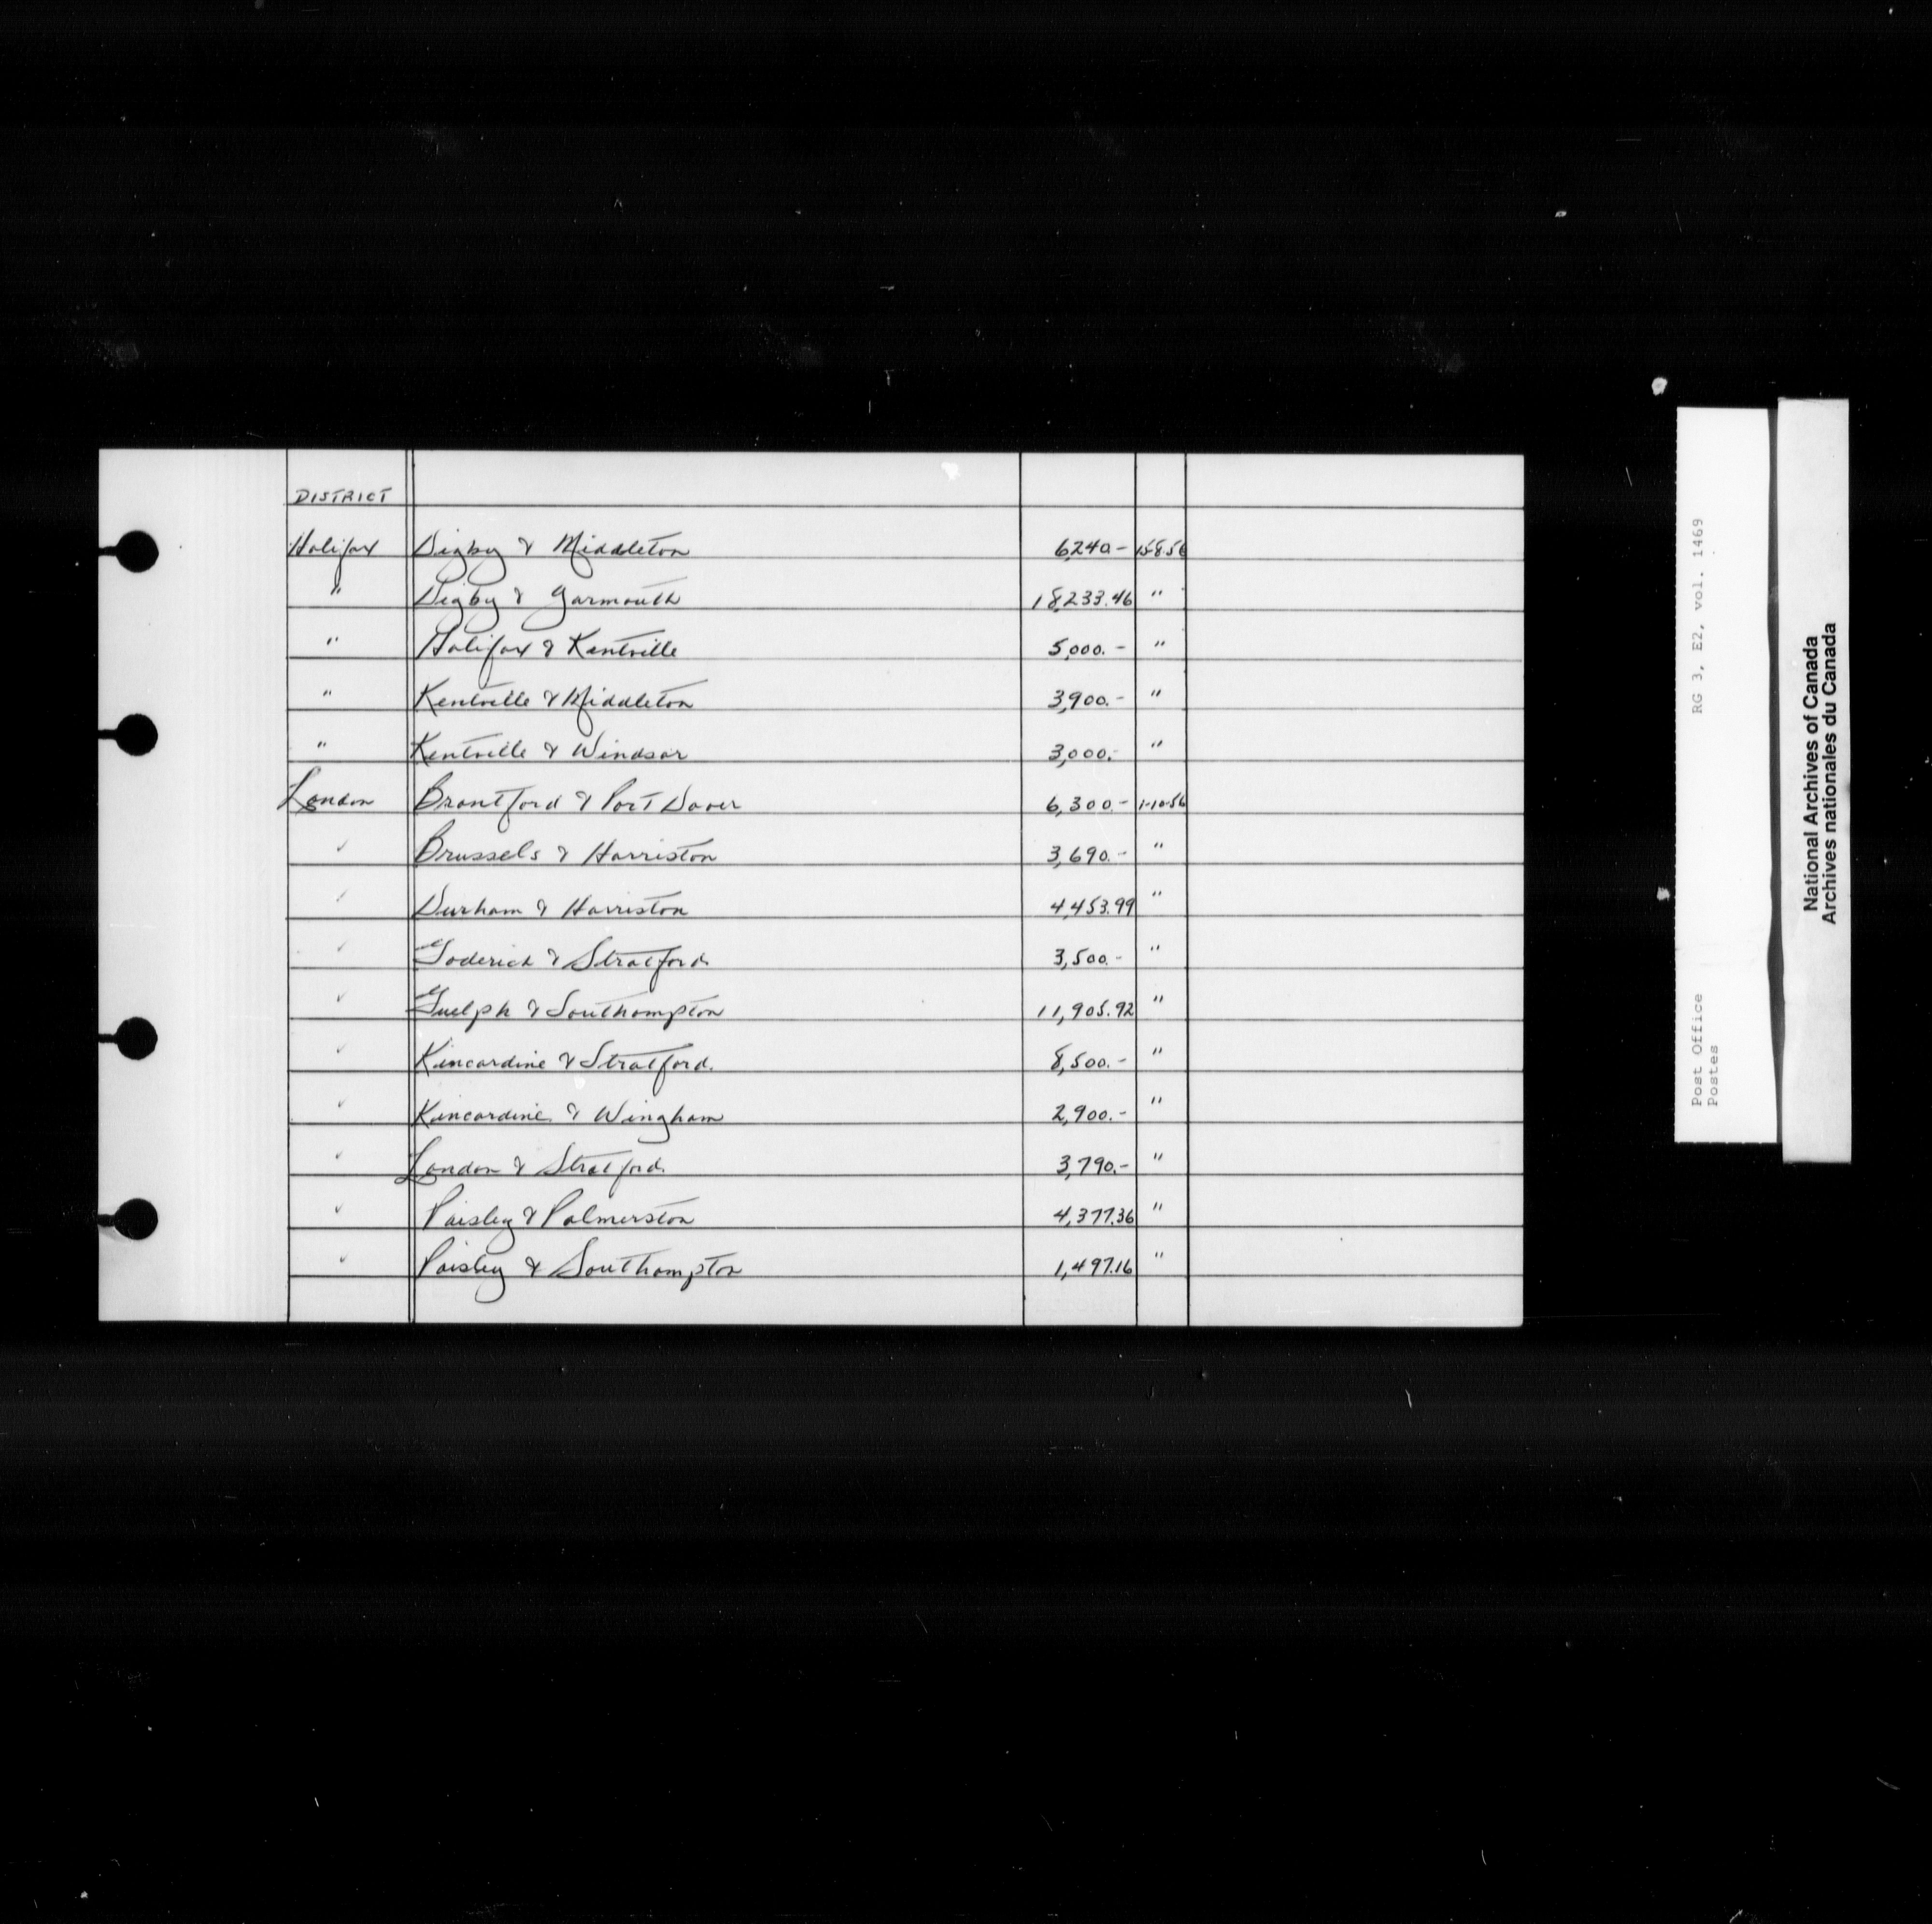 DISTRICT
Halifax Digby & Middleton 6240- 15-8-56
" Digby & Yarmouth 18,233.46 "
" Halifax & Kentville 5,000.- "
" Kentville & Middleton 3,900.- "
" Kentville & Windsor 3,000.- "
London Brantford & Port Dover 6,300.- 1-10-56
✓ Brussels & Harriston 3,690.- "
✓ Durham & Harriston 4,453.99 "
✓ Goderich & Stratford 3,500.- "
✓ Guelph & Southampton 11,905.92 "
✓ Kincardine & Stratford. 8,500.- "
✓ Kincardine & Wingham 2,900.- "
✓ London & Stratford. 3,790.- "
✓ Paisley & Palmerston 4,377.36 "
✓ Paisley & Southampton 1,497.16 "
Post Office RG 3, E2, vol. 1469
Postes
National Archives of Canada
Archives nationales du Canada